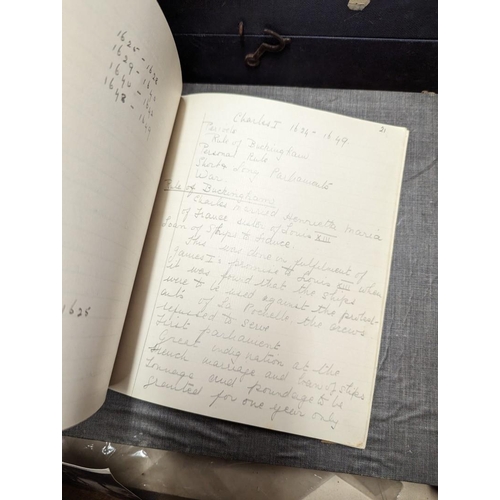 1625 - 1628
1629 - 16
1640 - 1642
1642 - 16
1628
21
Charles I 1625 - 1649.
Periods
Rule of Buckingham
Personal Rule
Short & Long Parliaments
War
Rule of Buckingham
Charles married Henrietta Maria
of France sister of Louis XIII
Loan of Ships to France
This was done in fulfilment of
James I's promise to Louis when
it was found that the ships
were to be used against the protest-
ants of La Rochelle the crews
refused to serve
First parliament
Great indignation at the
French marriage and loan of ships
Tonnage and poundage to be
granted for one year only